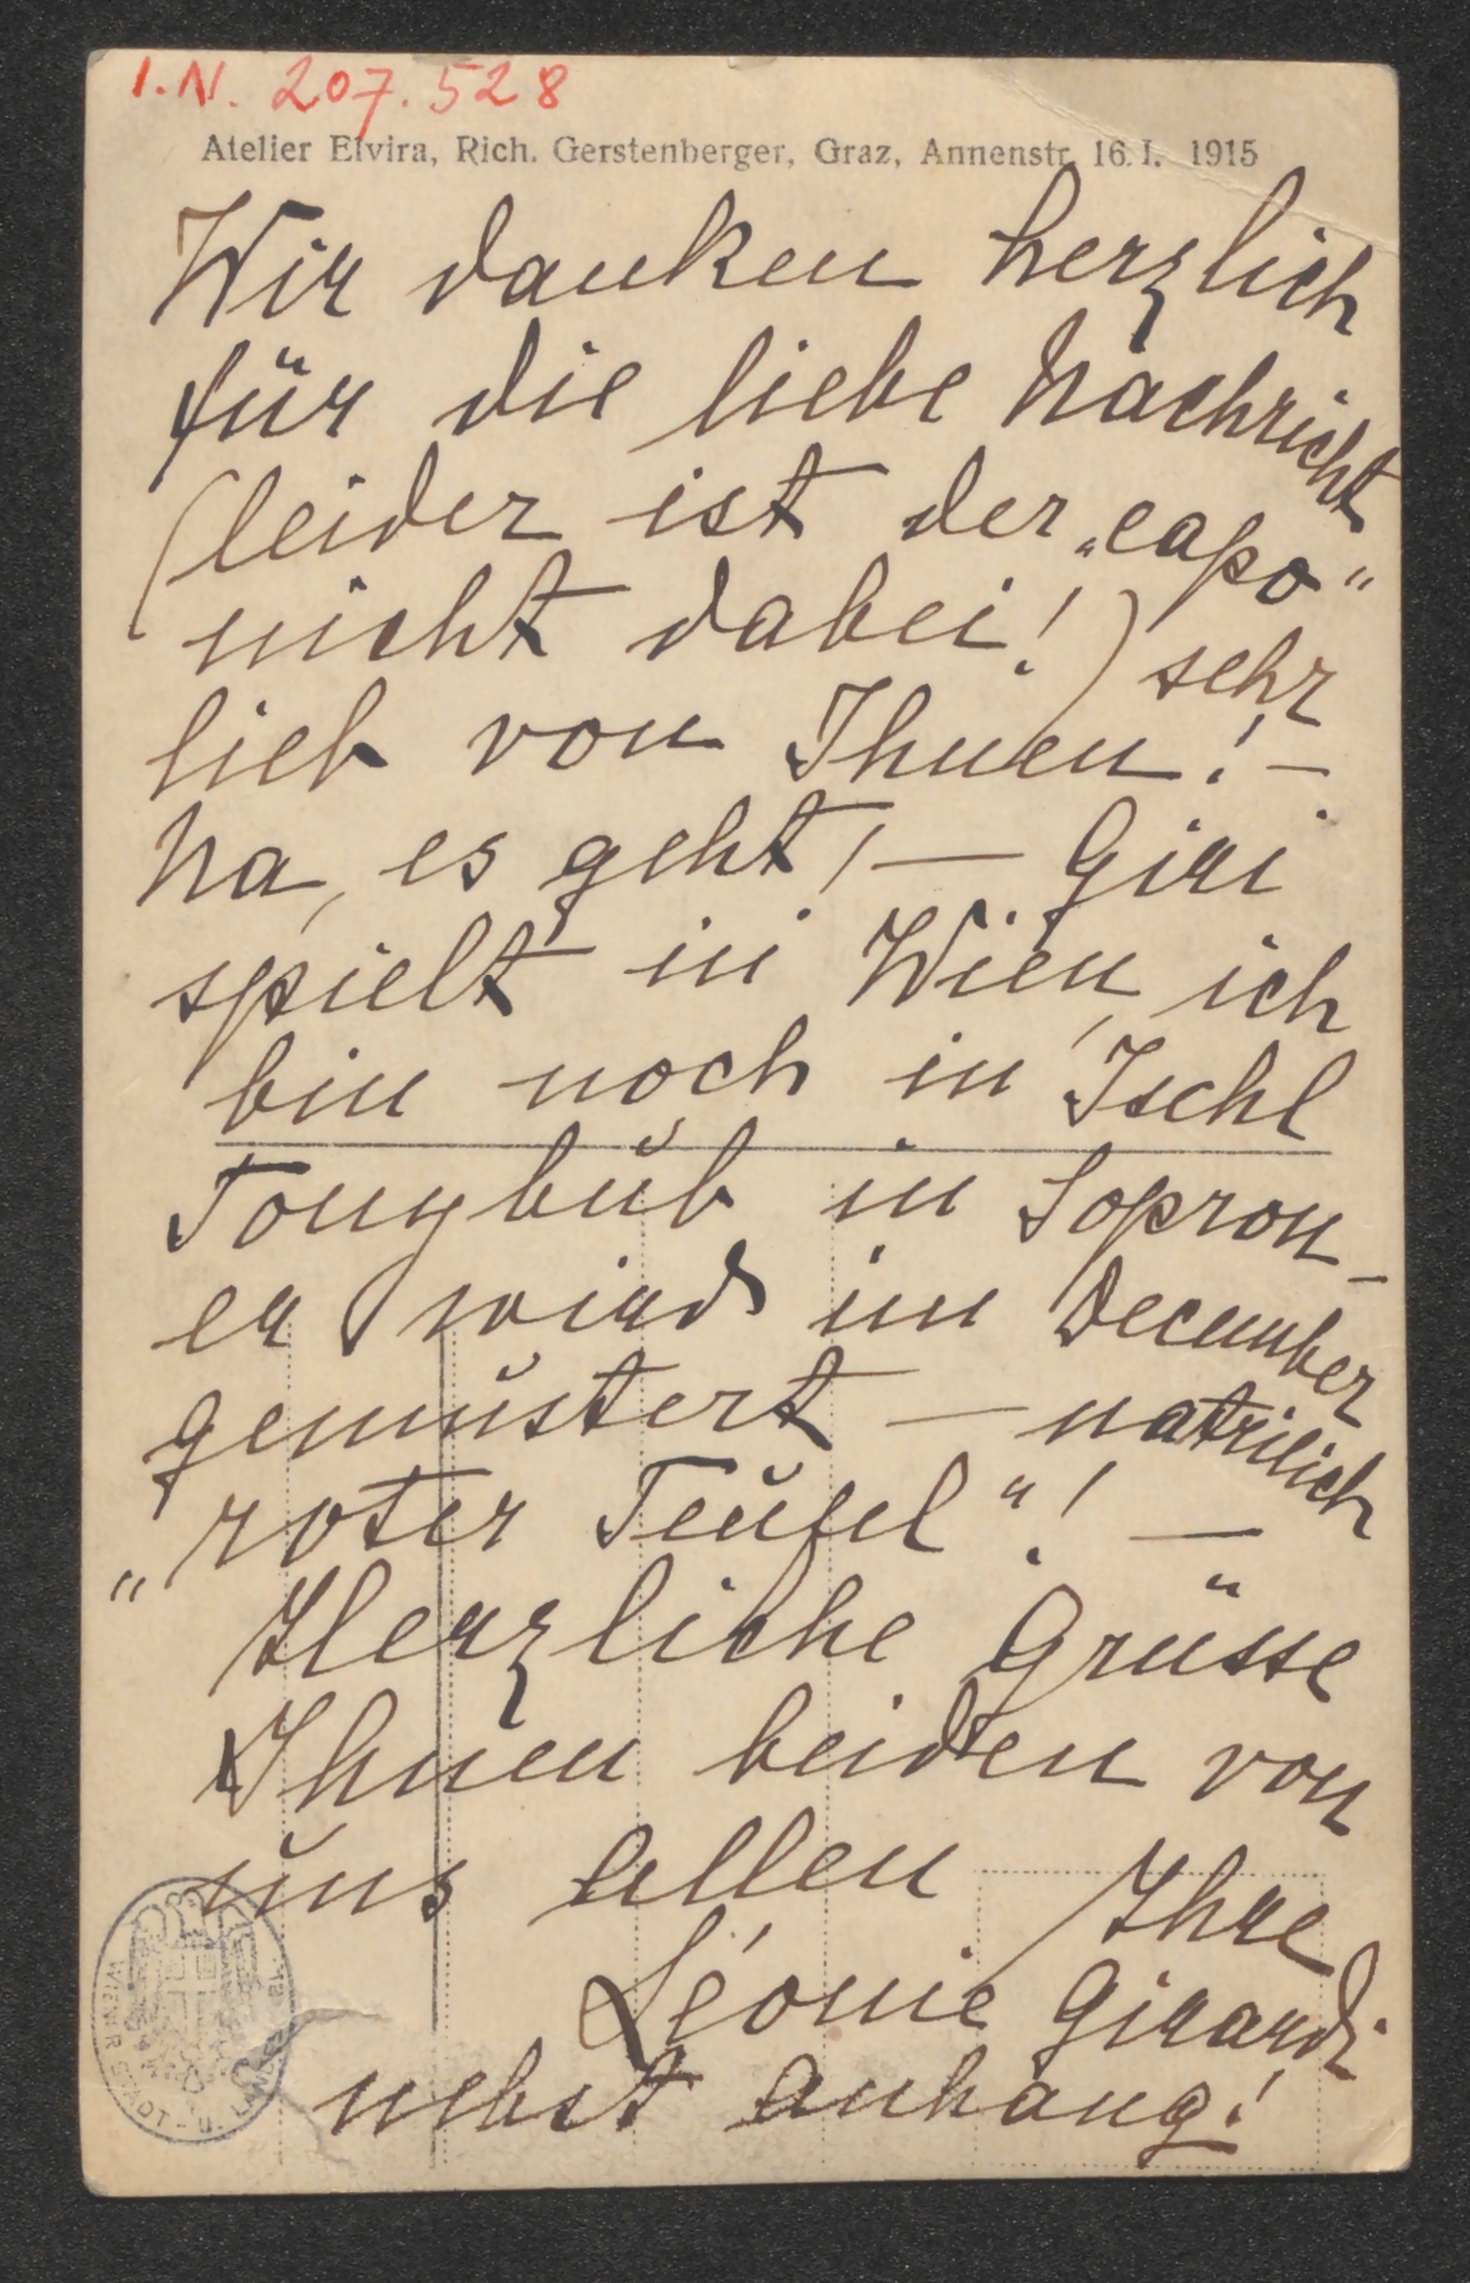 I.N. 207.528
Atelier Elvira, Rich. Gerstenberger, Graz, Annenstr. 16. I. 1915
Wir danken herzlich
für die liebe Nachricht
(leider ist der „capo“
nicht dabei!) sehr
lieb von Ihnen! –
Na, es geht! — Giri
spielt in Wien, ich
bin noch in Ischl
Tonybub in Sopron –
er wird im December
gemustert — natrilich
„roter Teufel“! —
Herzliche Grüsse
Ihnen beiden von
uns allen Ihre
Léonie Girardi
nebst Anhang!
WIENER STADT - U.